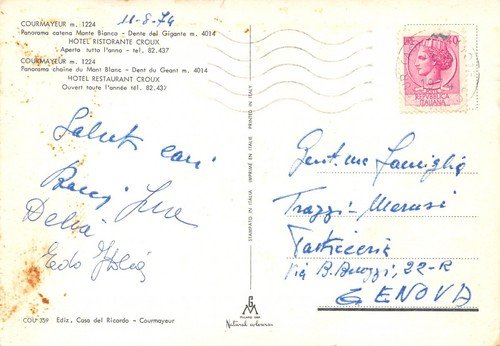 COURMAYEUR m. 1224
Panorama catena Monte Bianco - Dente del Gigante m. 4014
HOTEL RISTORANTE CROUX
Aperto tutto l'anno - tél. 82.437
COURMAYEUR m. 1224
Panorama chaîne du Mont Blanc - Dent du Geant m. 4014
HOTEL RESTAURANT CROUX
Ouvert toute l'année - tél. 82.437
11-8-74
Saluti cari
Delia
STAMPATO IN ITALIA IMPRIMÉ EN ITALIE PRINTED IN ITALY
40
ITALIANA
Gent.ma Famiglia
Pasticceria
Via 22-R
GENOVA
COU* 359 Ediz. Casa del Ricordo - Courmayeur
Natural colours